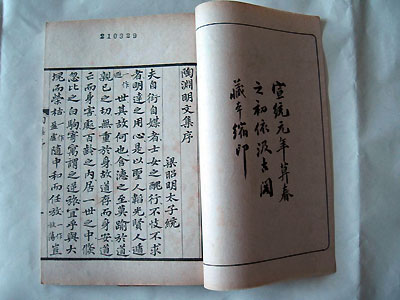 宣統元年莫春
之初依汲古閣
藏本縮印
210329
陶淵明文集序
梁昭明太子統
夫自衒自媒者士女之醜行不忮不求
者明達之用心是以聖人韜光賢人遁
世其故何也含德之至莫踰於道
親己之切無重於身故道存而身安道
亡而身害處百齡之內居一世之中倏
忽比之白駒寄寓謂之逆旅宜乎與大
塊而榮枯一作盈虛隨中和而任放豈